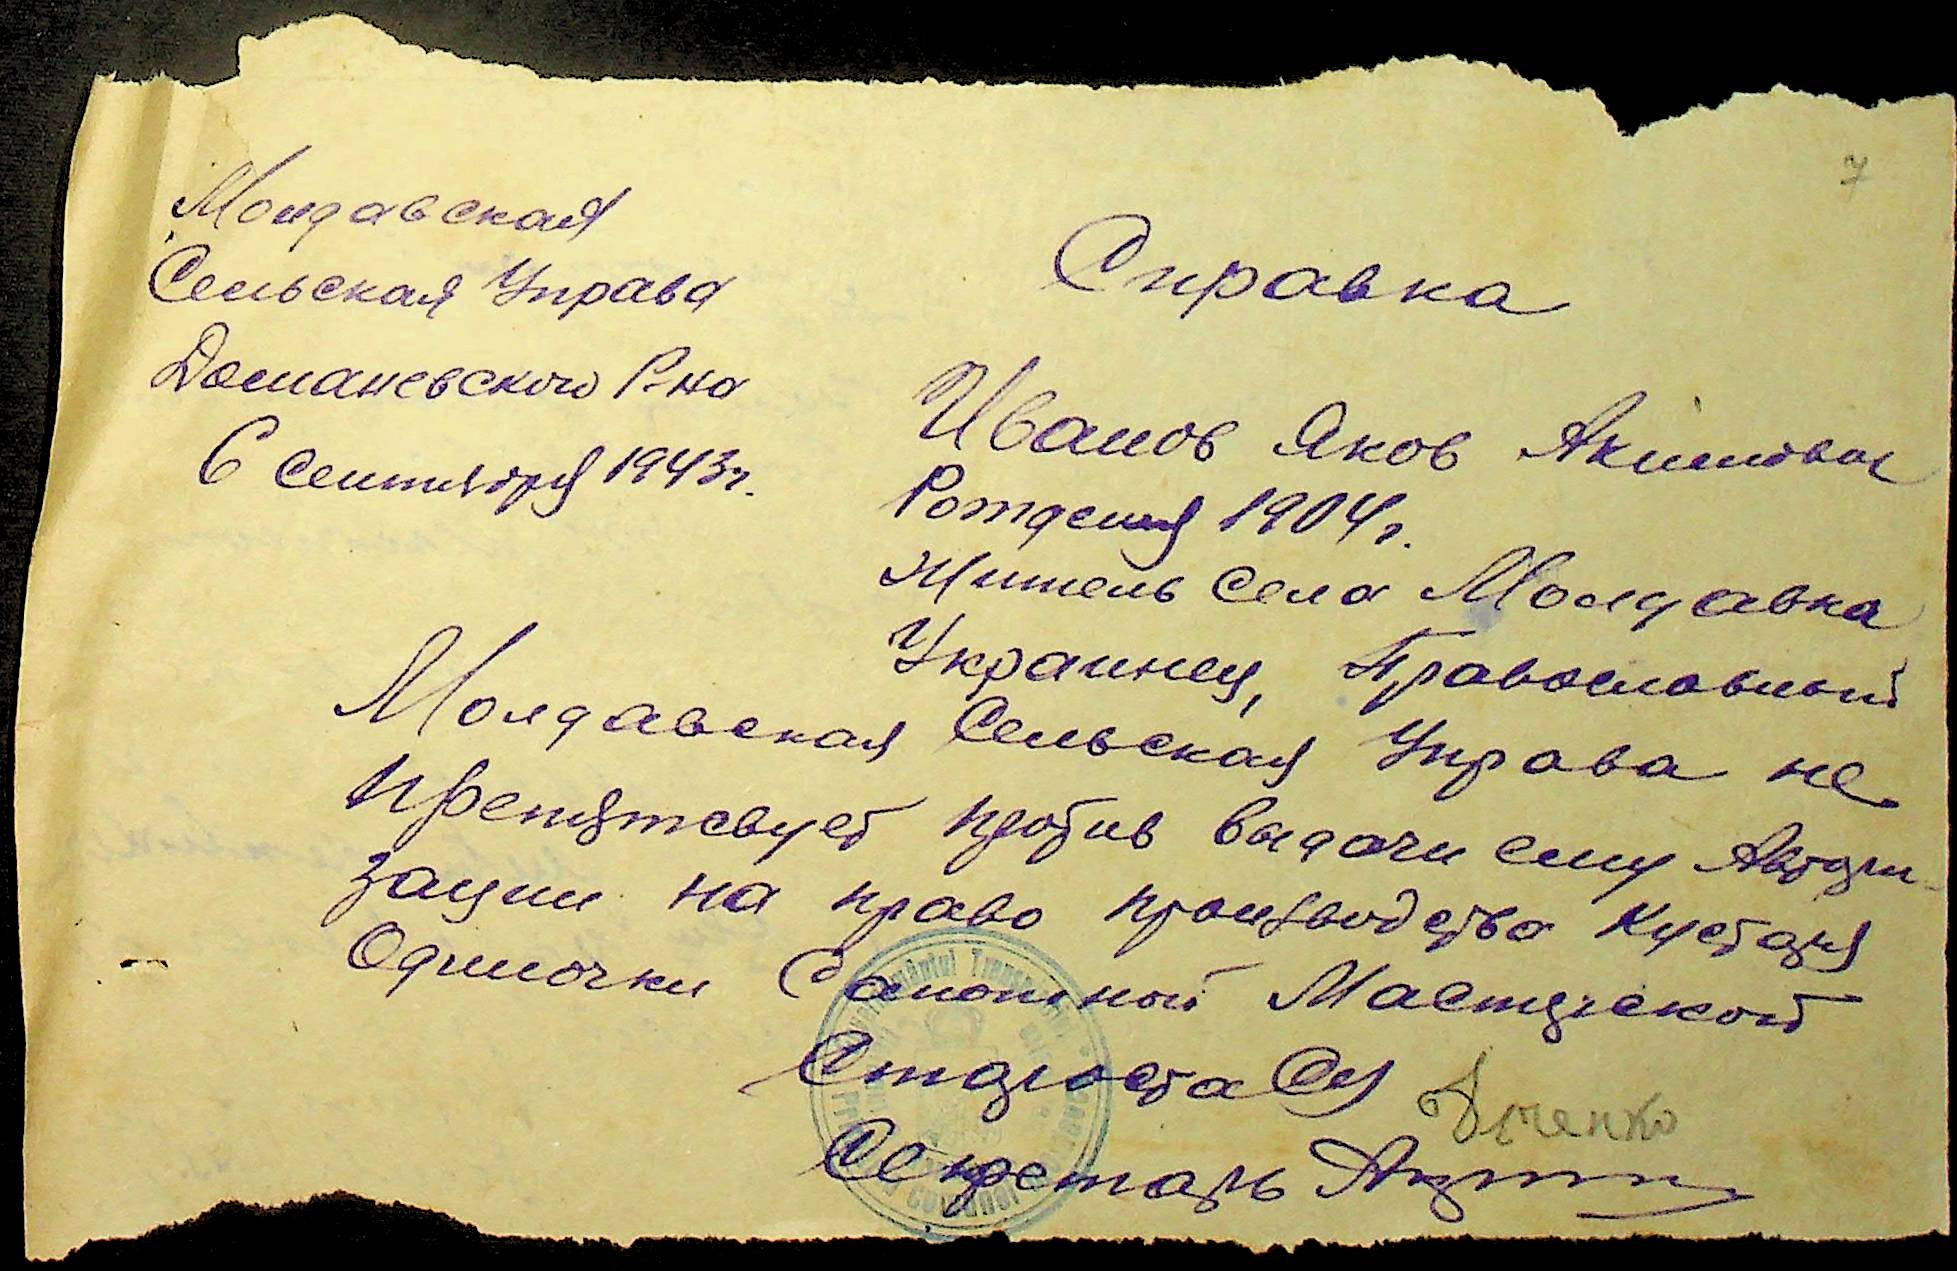 7
Молдавская
Сельская Управа
Доманевского Р-на
6 Сентября 1943 г.
Справка
Иванов Яков Акимович
Рождения 1904 г.
Житель Села Молдавка
Украинец, Православный
Молдавская Сельская Управа не
препятсвует против выдачи ему Автори-
зации на право производства Кустаря
Одиночки Сапожной Мастерской
Староста СУ
Секретарь